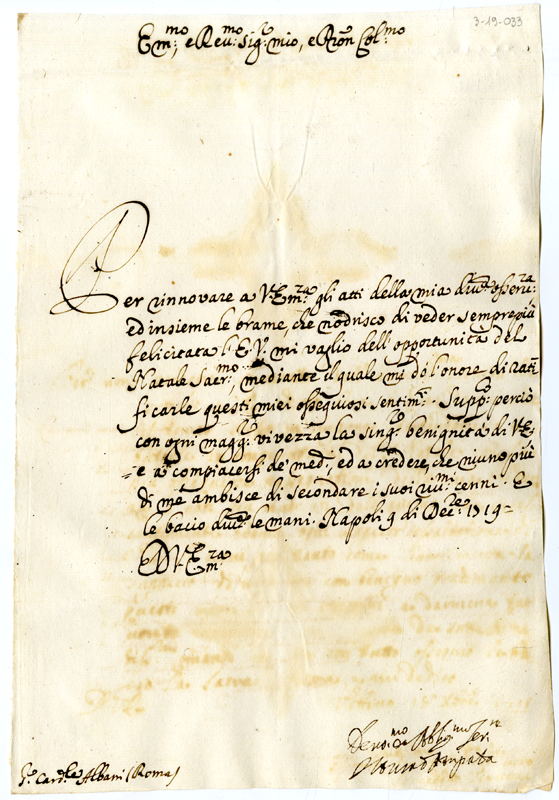 3-19-033
Em:mo, e Reu:mo Sig:r mio, e Pron Col:mo
Per rinnovare a V. Em:ra gli atti della mia diu:ta osseru:za
ed insieme le brame, che nodrisco di veder sempre più
felicitata l'E. V. mi vaglio dell'opportunità del
Natale Sacr:mo, mediante il quale mi dò l'onore di rati
ficarle questi miei ossequiosi sentim:ti. Supp:co perciò
con ogni magg:r vivezza la sing:r benignità di V. E.
= e à compiacersi de' med:, ed a credere, che niuno più
di me ambisce di secondare i suoi riu:mi cenni. E
le bacio diu:te le mani. Napoli 9 di Dec:re 1719=
D. V. Em:ra
S:r Card:le Albani (Roma)
Deuot:mo Obblig:mo Ser:re